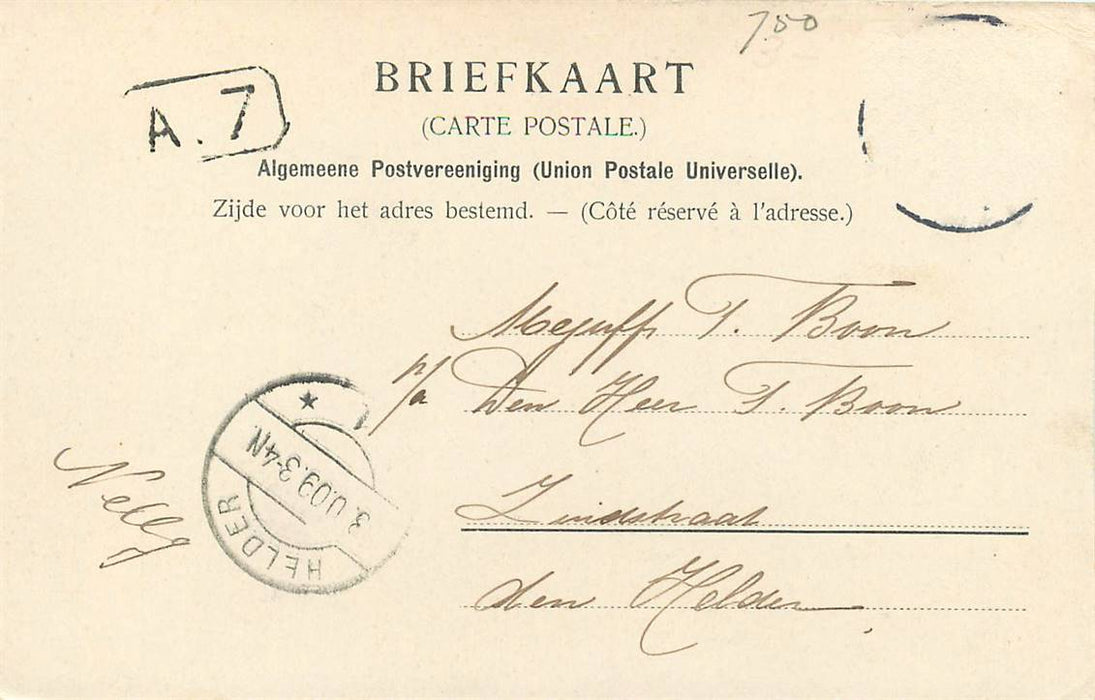 7.50
BRIEFKAART
(CARTE POSTALE.)
A. 7
Algemeene Postvereeniging (Union Postale Universelle).
Zijde voor het adres bestemd. — (Côté réservé à l'adresse.)
Mejuff T. Boon
p/a Den Heer T. Boon
Zuidstraat
den Helder
Nelly
HELDER
3. 09.3-4N